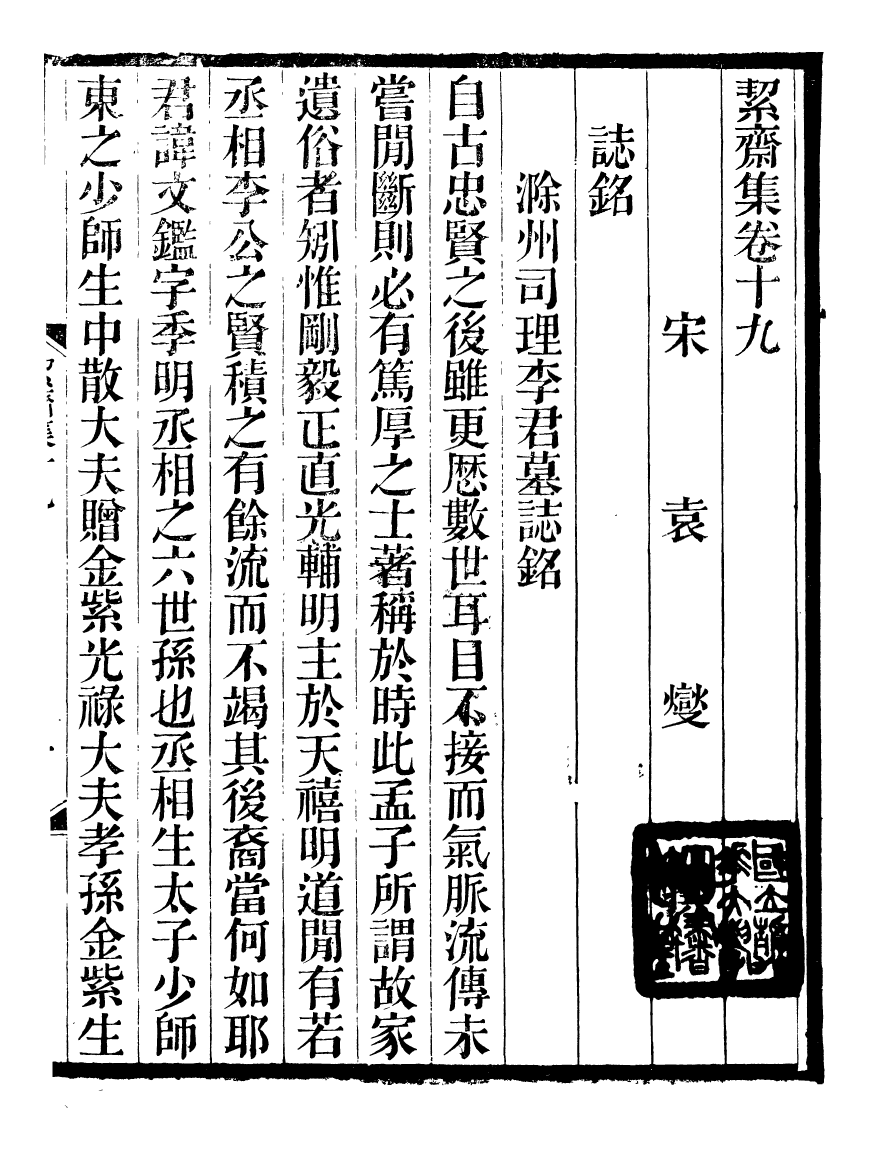 絜齋集卷十九
宋袁燮
誌銘
滁州司理李君墓誌銘
自古忠賢之後雖更歷數世耳目不接而氣脈流傳未
嘗閒斷則必有篤厚之士著稱於時此孟子所謂故家
遺俗者矧惟剛毅正直光輔明主於天禧明道閒有若
丞相李公之賢積之有餘流而不竭其後裔當何如耶
君諱文鑑字季明丞相之六世孫也丞相生太子少師
東之少師生中散大夫贈金紫光祿大夫孝孫金紫生